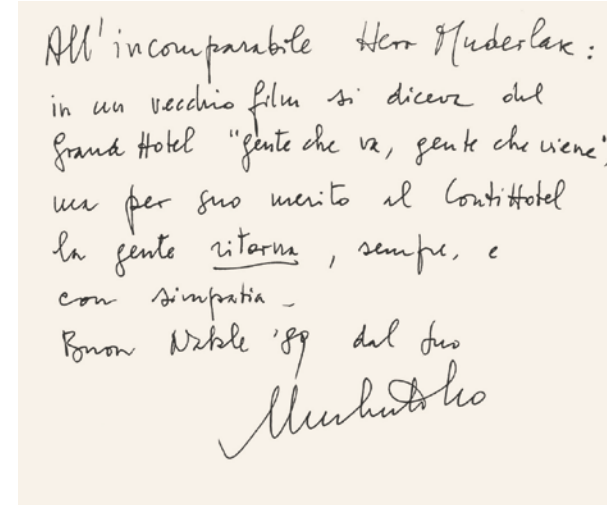 All'incomparabile Herr Muderlak:
in un vecchio film si diceva del
Grand Hotel "gente che va, gente che viene",
ma per suo merito al ContiHotel
la gente ritorna, sempre, e
con simpatia -
Buon Natale '89 dal suo